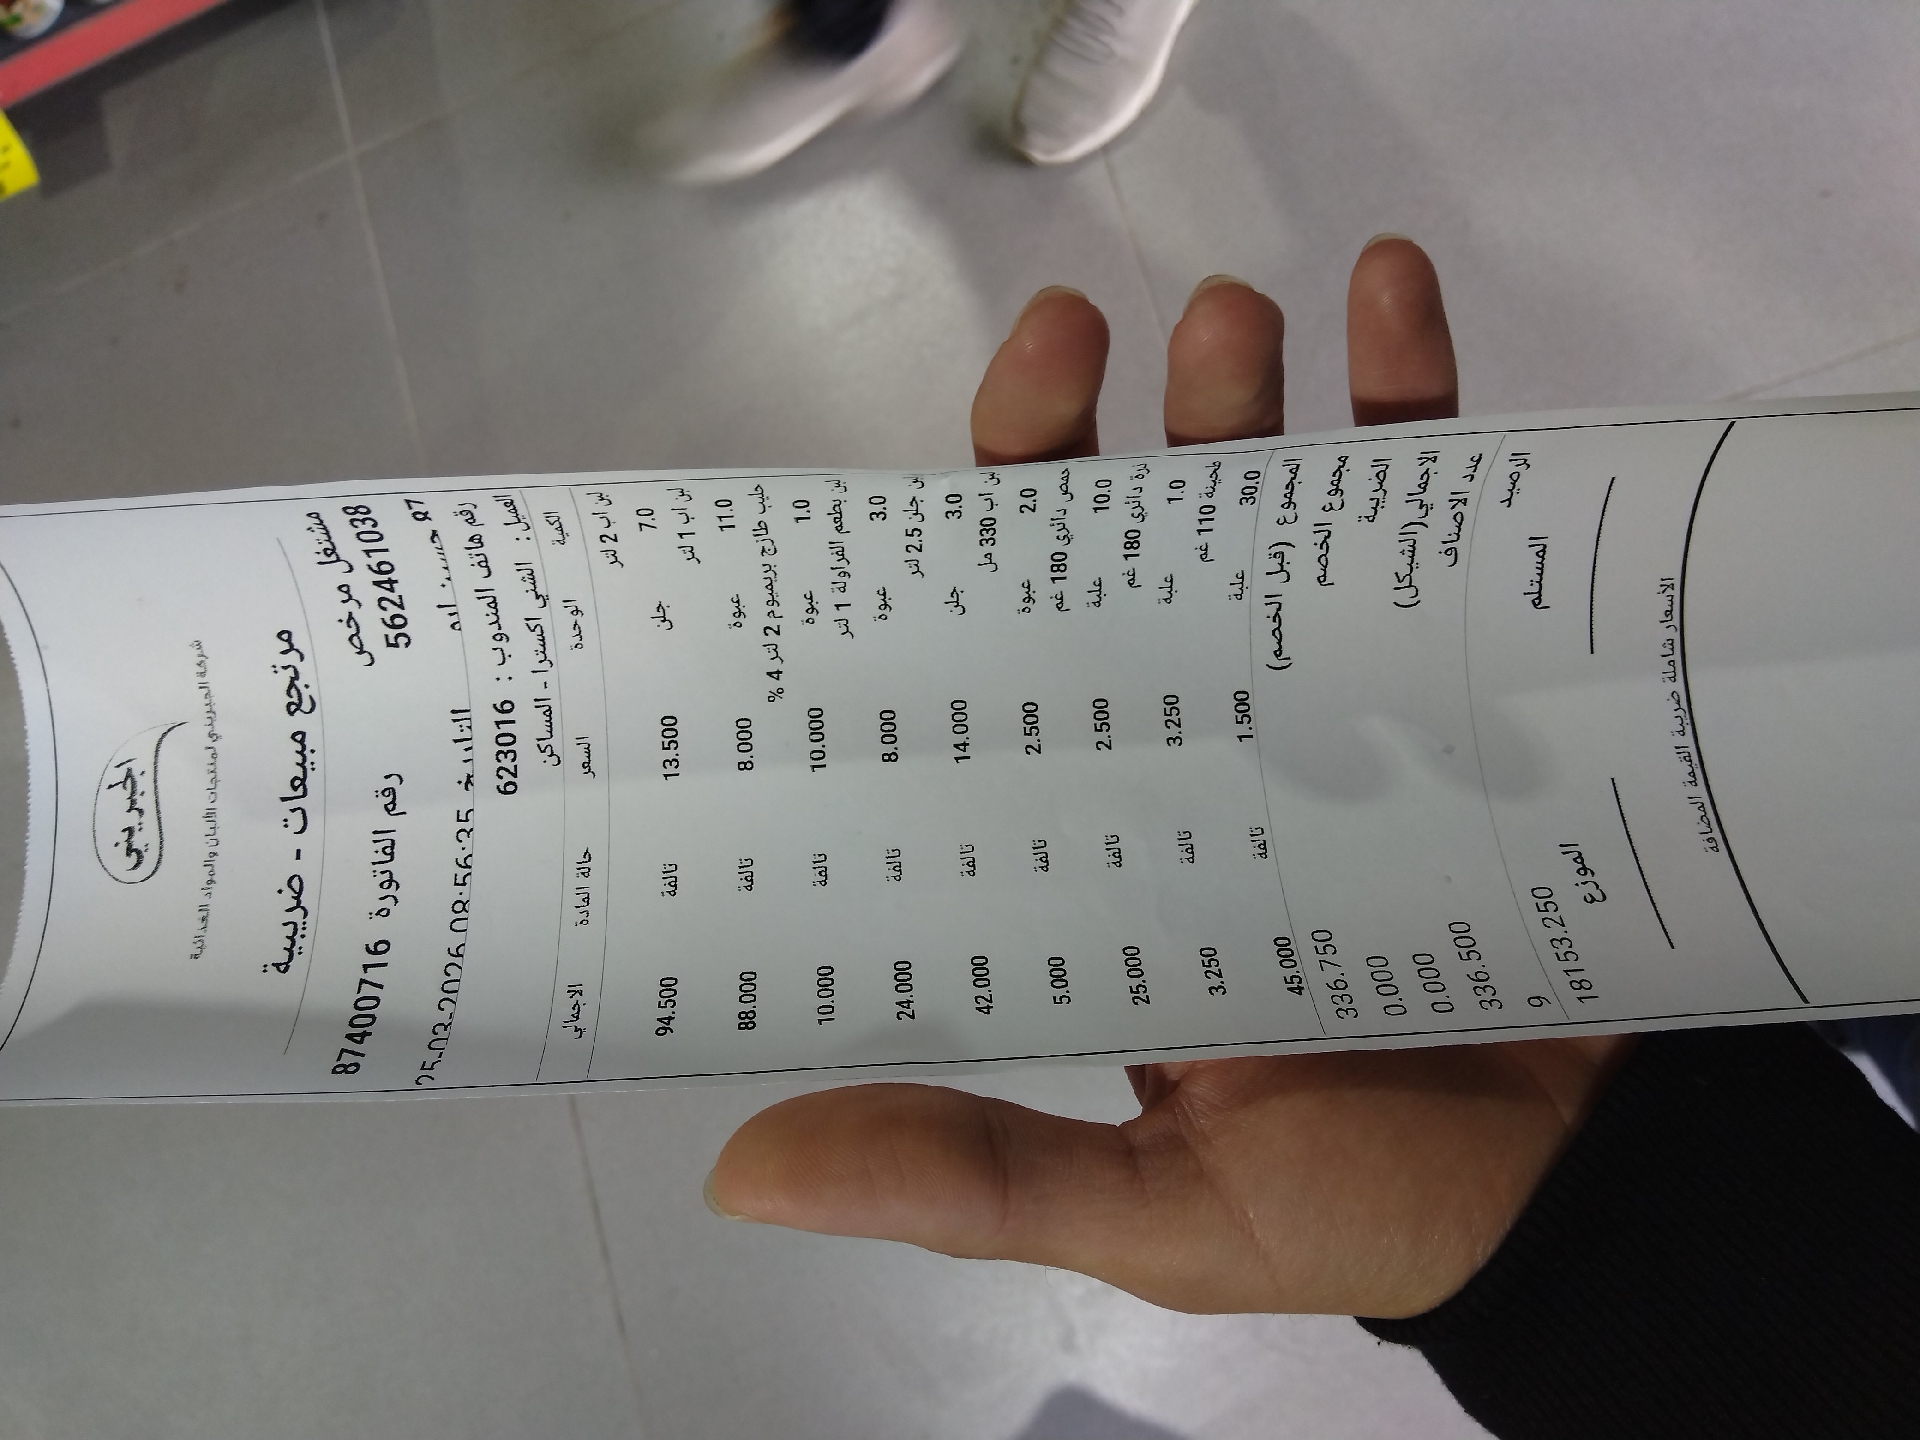 الجبريني
شركة الجبريني لمنتجات الألبان والمواد الغذائية
مرتجع مبيعات - ضريبية
مشتغل مرخص
562461038
رقم الفاتورة 87400716
التاريخ 25-03-2026 08:56:35
رقم هاتف المندوب : 623016
العميل: الشني اكسترا - المساكن
الكمية الوحدة السعر حالة المادة الاجمالي
لبن اب 2 لتر
7.0 جلن 13.500 تالفة 94.500
لبن اب 1 لتر
11.0 عبوة 8.000 تالفة 88.000
حليب طازج بريميوم 2 لتر 4 %
1.0 عبوة 10.000 تالفة 10.000
لبن بطعم الفراولة 1 لتر
3.0 عبوة 8.000 تالفة 24.000
لبن جلن 2.5 لتر
3.0 جلن 14.000 تالفة 42.000
لبن اب 330 مل
2.0 عبوة 2.500 تالفة 5.000
حمص دائري 180 غم
10.0 علبة 2.500 تالفة 25.000
ذرة دائري 180 غم
1.0 علبة 3.250 تالفة 3.250
طحينة 110 غم
30.0 علبة 1.500 تالفة 45.000
المجموع (قبل الخصم) 336.750
مجموع الخصم 0.000
الضريبة 0.000
الاجمالي(الشيكل) 336.500
عدد الاصناف 9
الرصيد 18153.250
المستلم الموزع
الأسعار شاملة ضريبة القيمة المضافة